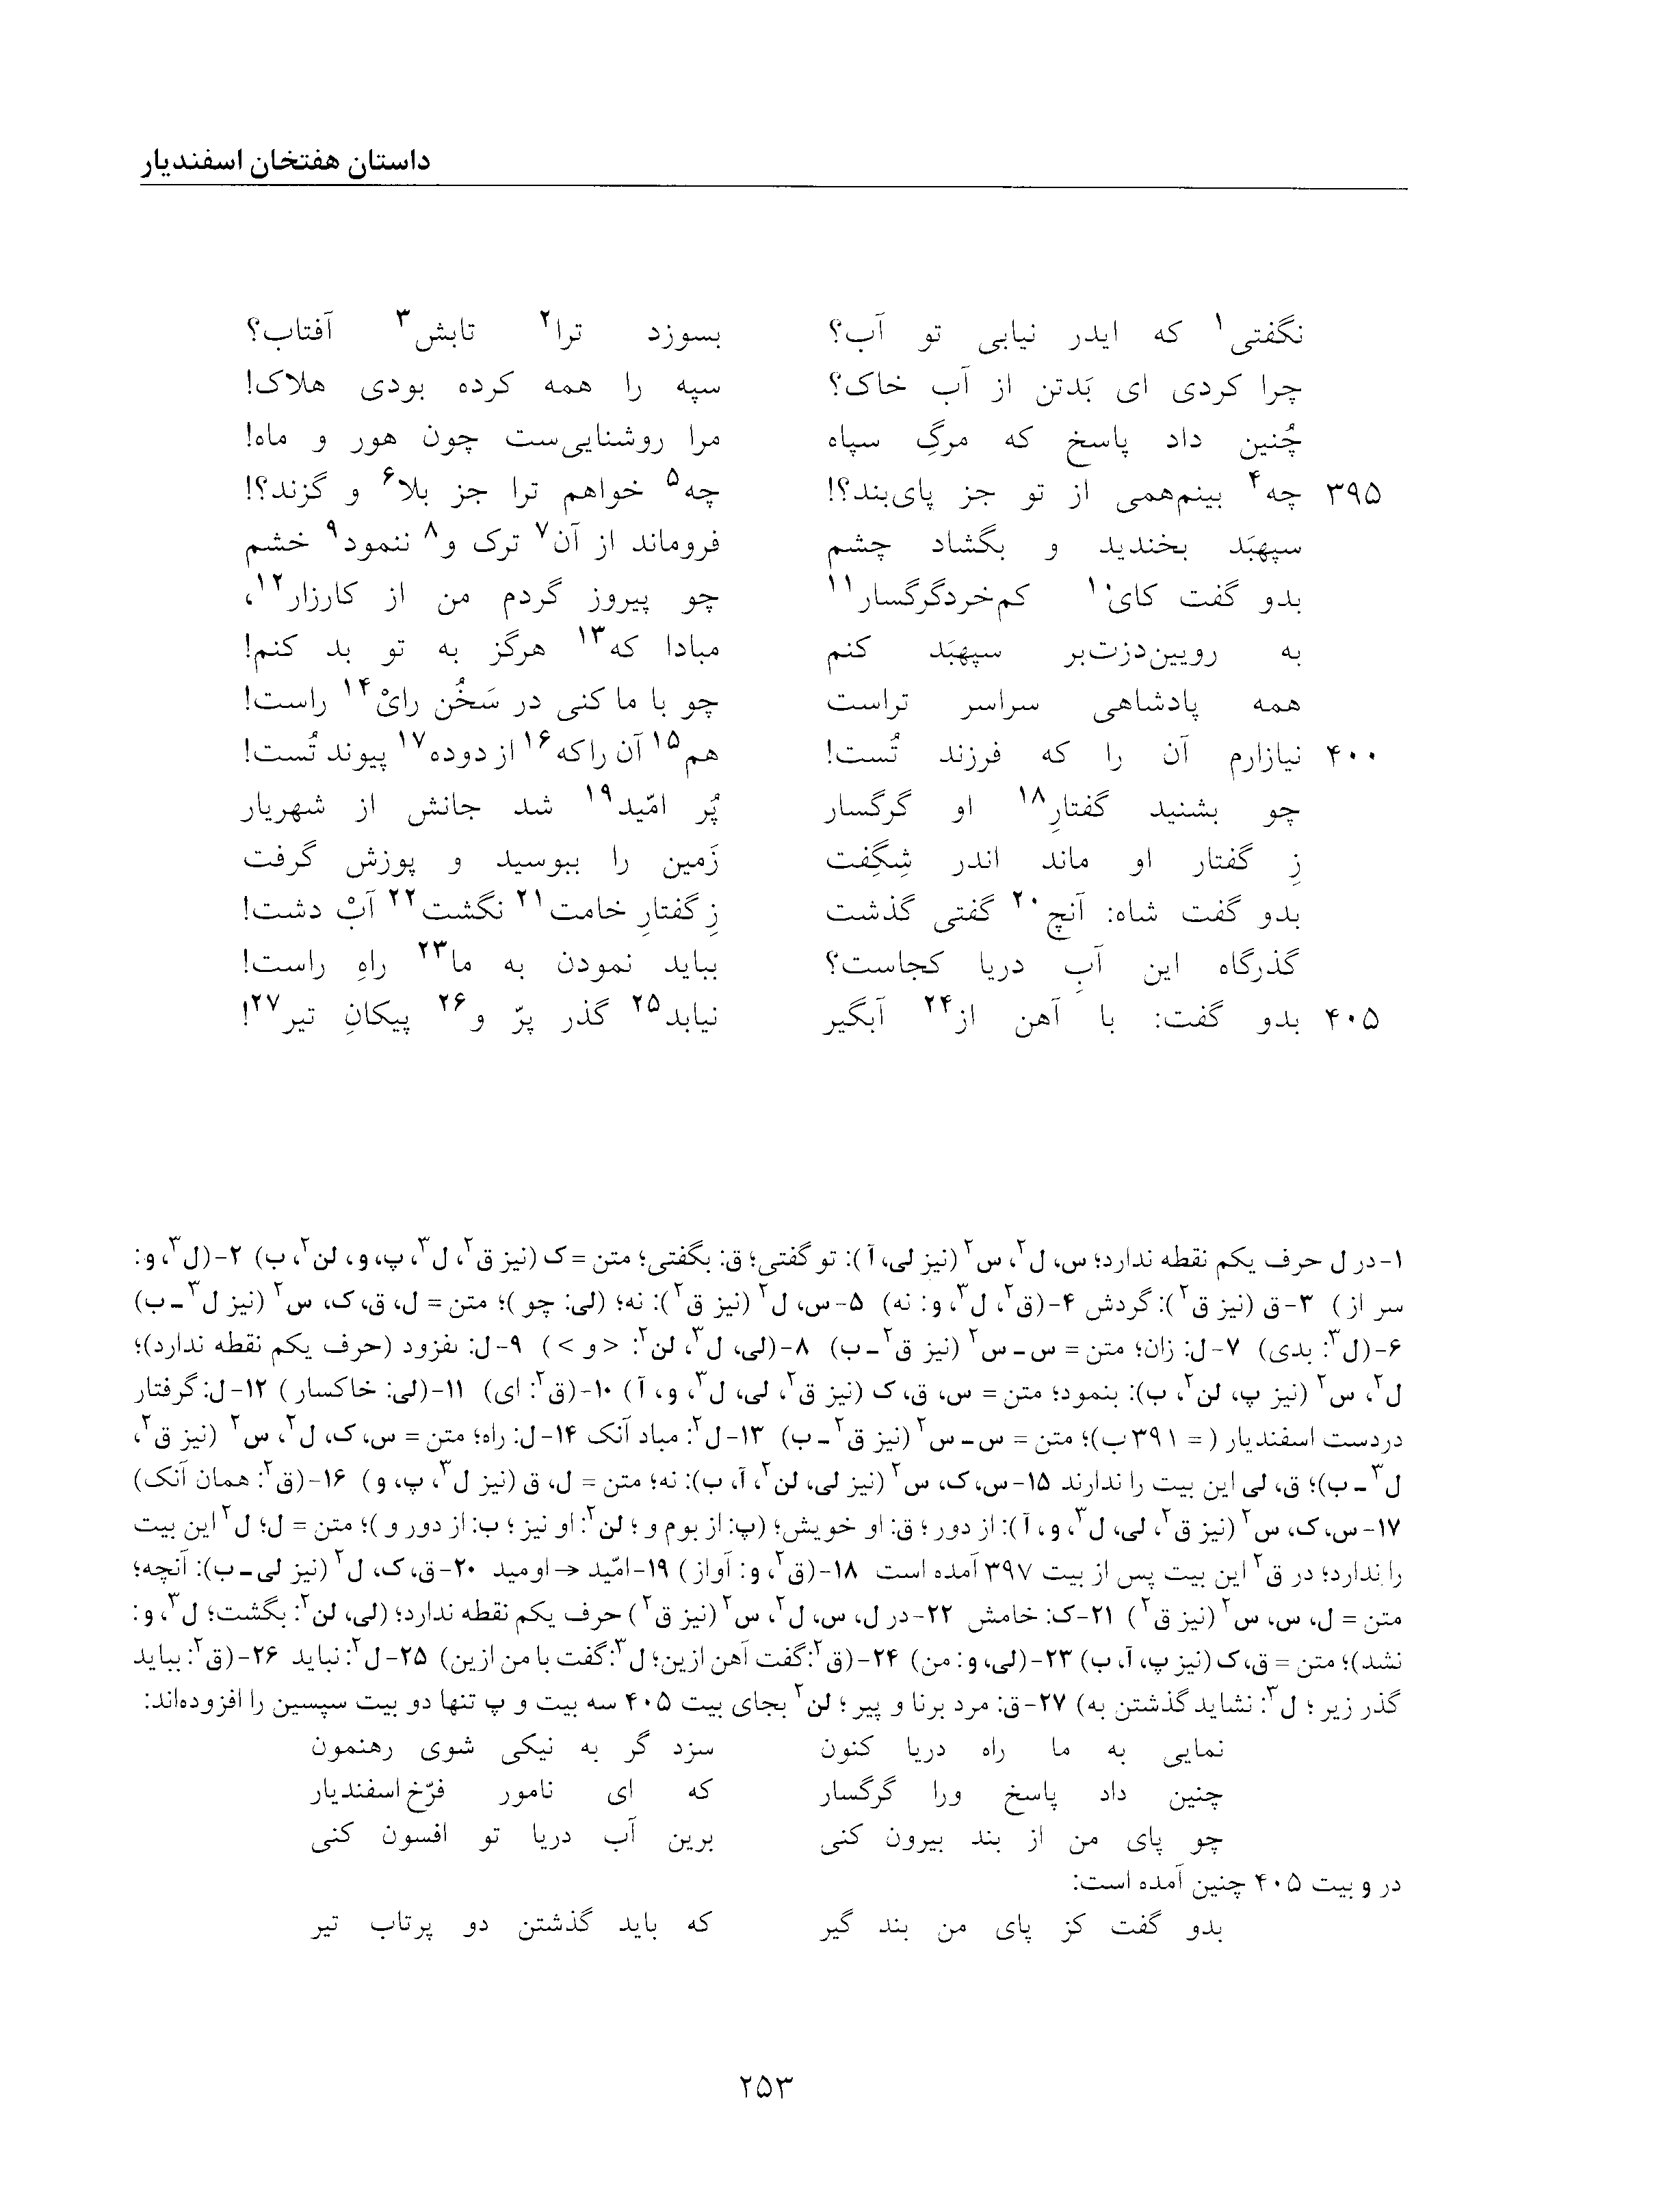 داستان هفتخان اسفندیار
نگفتی۱ که ایدر نیابی تو آب؟ بسوزد ترا۲ تابش۳ آفتاب؟
چرا کردی ای بَدتن از آب خاک؟ سپه را همه کرده بودی هلاک!
چُنین داد پاسخ که مرگِ سپاه مرا روشنایی‌ست چون هور و ماه!
۳۹۵ چه۴ بینم‌همی از تو جز پای‌بند؟! چه۵ خواهم ترا جز بلا۶ و گزند؟!
سپهبَد بخندید و بگشاد چشم فروماند از آن۷ ترک و۸ ننمود۹ خشم
بدو گفت کای۱۰ کم‌خردگرگسار۱۱ چو پیروز گردم من از کارزار۱۲،
به رویین‌دزت‌بر سپهبَد کنم مبادا که۱۳ هرگز به تو بد کنم!
همه پادشاهی سراسر تراست چو با ما کنی در سَخُن رایْ۱۴ راست!
۴۰۰ نیازارم آن را که فرزند تُست! هم۱۵ آن راکه۱۶ از دوده۱۷ پیوند تُست!
چو بشنید گفتارِ۱۸ او گرگسار پُر امّید۱۹ شد جانش از شهریار
زِ گفتار او ماند اندر شِگِفت زَمین را ببوسید و پوزش گرفت
بدو گفت شاه: آنچ۲۰ گفتی گذشت زِ گفتارِ خامت۲۱ نگشت۲۲ آبْ دشت!
گذرگاه این آبِ دریا کجاست؟ بباید نمودن به ما۲۳ راهِ راست!
۴۰۵ بدو گفت: با آهن از۲۴ آبگیر نیابد۲۵ گذر پرّ و۲۶ پیکانِ تیر۲۷!
۱-در ل حرف یکم نقطه ندارد؛ س، ل۲، س۲ (نیز لی، آ): تو گفتی؛ ق: بگفتی؛ متن = ک (نیز ق۲، ل۳، پ، و، لن۲، ب) ۲-(ل۳، و:
سر از) ۳-ق (نیز ق۲): گردش ۴-(ق۲، ل۳، و: نه) ۵-س، ل۲ (نیز ق۲): نه؛ (لی: چو)؛ متن = ل، ق، ک، س۲ (نیز ل۳ـ ب)
۶-(ل۳: بدی) ۷-ل: زان؛ متن = س ـ س۲ (نیز ق۲ـ ب) ۸-(لی، ل۳، لن۲: <و>) ۹-ل: ںفزود (حرف یکم نقطه ندارد)؛
ل۲، س۲ (نیز پ، لن۲، ب): بنمود؛ متن = س، ق، ک (نیز ق۲، لی، ل۳، و، آ) ۱۰-(ق۲: ای) ۱۱-(لی: خاکسار) ۱۲-ل: گرفتار
دردست اسفندیار (= ۳۹۱ ب)؛ متن = س ـ س۲ (نیز ق۲ـ ب) ۱۳-ل۲: مباد آنک ۱۴-ل: راه؛ متن = س، ک، ل۲، س۲ (نیز ق۲،
ل۳ـ ب)؛ ق، لی این بیت را ندارند ۱۵-س، ک، س۲ (نیز لی، لن۲، آ، ب): نه؛ متن = ل، ق (نیز ل۳، پ، و) ۱۶-(ق۲: همان آنک)
۱۷-س، ک، س۲ (نیز ق۲، لی، ل۳، و، آ): از دور؛ ق: او خویش؛ (پ: از بوم و؛ لن۲: او نیز؛ ب: از دور و)؛ متن = ل؛ ل۲ این بیت
را ندارد؛ در ق۲ این بیت پس از بیت ۳۹۷ آمده است ۱۸-(ق۲، و: آواز) ۱۹-امّید → اومید ۲۰-ق، ک، ل۲ (نیز لی ـ ب): آنچه؛
متن = ل، س، س۲ (نیز ق۲) ۲۱-ک: خامش ۲۲-در ل، س، ل۲، س۲ (نیز ق۲) حرف یکم نقطه ندارد؛ (لی، لن۲: بگشت؛ ل۳، و:
نشد)؛ متن = ق، ک (نیز پ، آ، ب) ۲۳-(لی، و: من) ۲۴-(ق۲: گفت آهن ازین؛ ل۳: گفت با من ازین) ۲۵-ل۲: نباید ۲۶-(ق۲: بباید
گذر زیر؛ ل۳: نشاید گذشتن به) ۲۷-ق: مرد برنا و پیر؛ لن۲ بجای بیت ۴۰۵ سه بیت و پ تنها دو بیت سپسین را افزوده‌اند:
نمایی به ما راه دریا کنون سزد گر به نیکی شوی رهنمون
چنین داد پاسخ ورا گرگسار که ای نامور فرّخ اسفندیار
چو پای من از بند بیرون کنی برین آب دریا تو افسون کنی
در و بیت ۴۰۵ چنین آمده است:
بدو گفت کز پای من بند گیر که باید گذشتن دو پرتاب تیر
۲۵۳